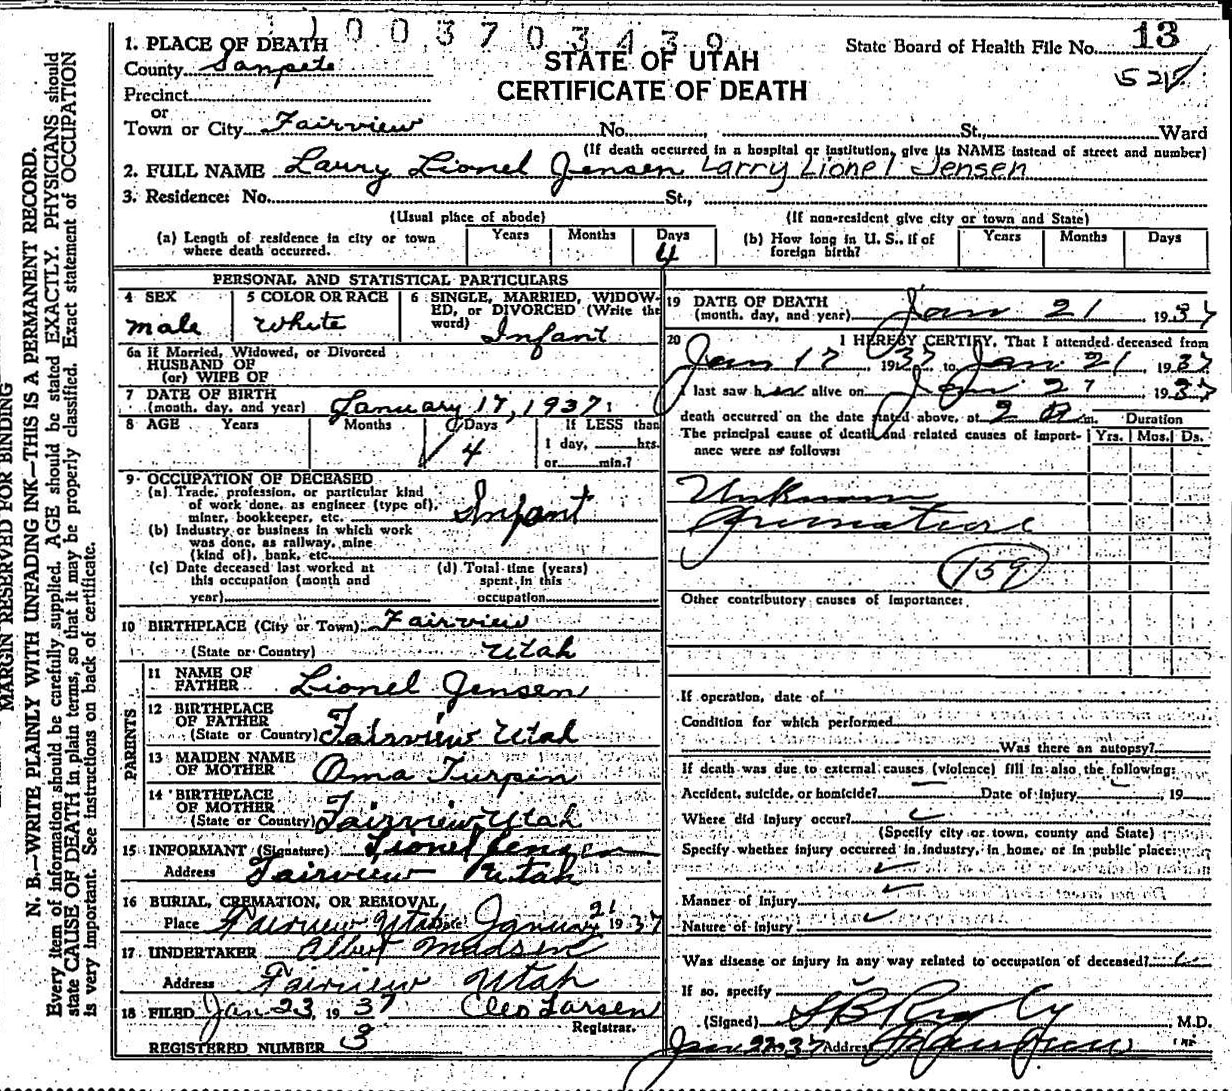 1003703439
1. PLACE OF DEATH
County Sanpete
STATE OF UTAH
CERTIFICATE OF DEATH
State Board of Health File No. 13
Precinct
or
Town or City Fairview No. St., Ward
(If death occurred in a hospital or institution, give its NAME instead of street and number)
2. FULL NAME Larry Lionel Jensen Larry Lionel Jensen
3. Residence: No. St.,
(Usual place of abode) (If non-resident give city or town and State)
(a) Length of residence in city or town where death occurred. Years Months Days 4
(b) How long in U. S., if of foreign birth? Years Months Days
PERSONAL AND STATISTICAL PARTICULARS
4 SEX male
5 COLOR OR RACE White
6 SINGLE, MARRIED, WIDOWED, or DIVORCED (Write the word) Infant
6a If Married, Widowed, or Divorced
HUSBAND OF
(or) WIFE OF
7 DATE OF BIRTH
(month, day, and year) January 17, 1937
8 AGE Years Months Days 4 If LESS than
1 day, hrs.
or min.?
9 OCCUPATION OF DECEASED
(a) Trade, profession, or particular kind
of work done, as engineer (type of),
miner, bookkeeper, etc. Infant
(b) Industry or business in which work
was done, as railway, mine
(kind of), bank, etc.
(c) Date deceased last worked at
this occupation (month and
year)
(d) Total time (years)
spent in this
occupation
10 BIRTHPLACE (City or Town) Fairview
(State or Country) Utah
PARENTS
11 NAME OF
FATHER Lionel Jensen
12 BIRTHPLACE
OF FATHER
(State or Country) Fairview Utah
13 MAIDEN NAME
OF MOTHER Oma Turpin
14 BIRTHPLACE
OF MOTHER
(State or Country) Fairview Utah
15 INFORMANT (Signature) Lionel Jensen
Address Fairview Utah
16 BURIAL, CREMATION, OR REMOVAL
Place Fairview Utah Date January 21 1937
17 UNDERTAKER Albert Madsen
Address Fairview Utah
18 FILED Jan 23, 1937 Cleo Larsen
Registrar.
REGISTERED NUMBER 3
19 DATE OF DEATH
(month, day, and year) Jan 21, 1937
20 I HEREBY CERTIFY, That I attended deceased from
Jan 17 1937, to Jan 21, 1937
I last saw h alive on Jan, 1937
death occurred on the date stated above, at 2 m. Duration
The principal cause of death and related causes of importance were as follows: Yrs. Mos. Ds.
Unknown
Premature
159
Other contributory causes of importance:
If operation, date of
Condition for which performed
Was there an autopsy?
If death was due to external causes (violence) fill in also the following:
Accident, suicide, or homicide? Date of injury , 19
Where did injury occur?
(Specify city or town, county and State)
Specify whether injury occurred in industry, in home, or in public place:
Manner of Injury
Nature of injury
Was disease or injury in any way related to occupation of deceased?
If so, specify
(Signed) M.D.
Jan 37 Address Fairview
MARGIN RESERVED FOR BINDING
N. B.—WRITE PLAINLY WITH UNFADING INK—THIS IS A PERMANENT RECORD.
Every item of information should be carefully supplied. AGE should be stated EXACTLY. PHYSICIANS should
state CAUSE OF DEATH in plain terms, so that it may be properly classified. Exact statement of OCCUPATION
is very important. See instructions on back of certificate.